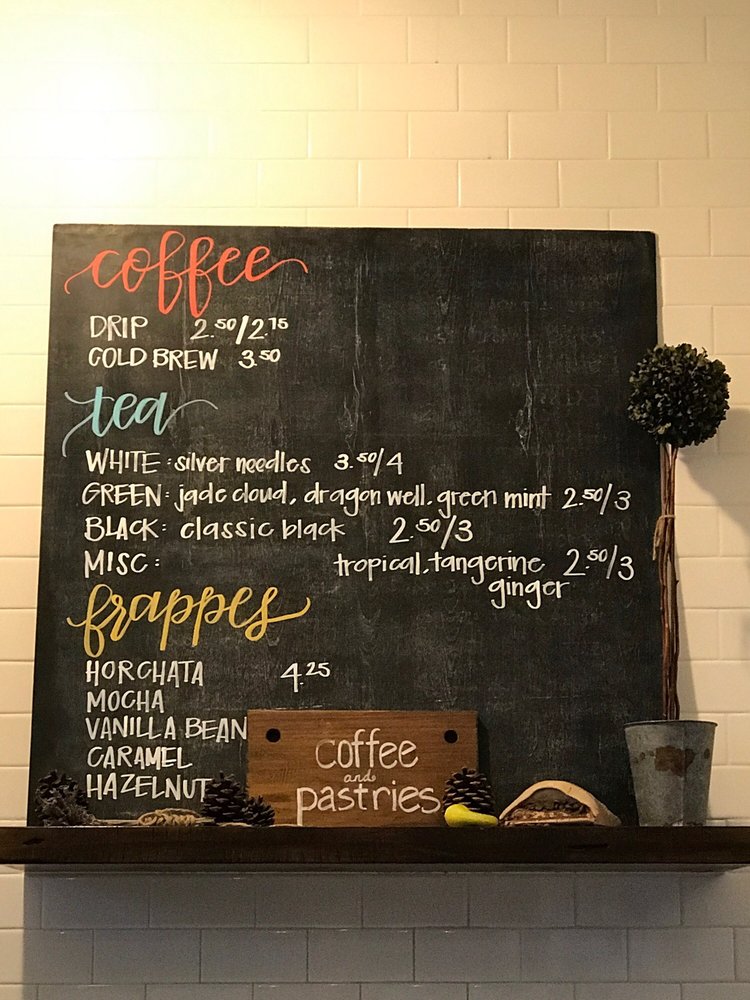 coffee
DRIP 2.50/2.75
COLD BREW 3.50
tea
WHITE: silver needles 3.50/4
GREEN: jade cloud, dragon well, green mint 2.50/3
BLACK: classic black 2.50/3
MISC: tropical, tangerine 2.50/3
ginger
frappes
HORCHATA 4.25
MOCHA
VANILLA BEAN
CARAMEL
HAZELNUT
coffee
and
pastries